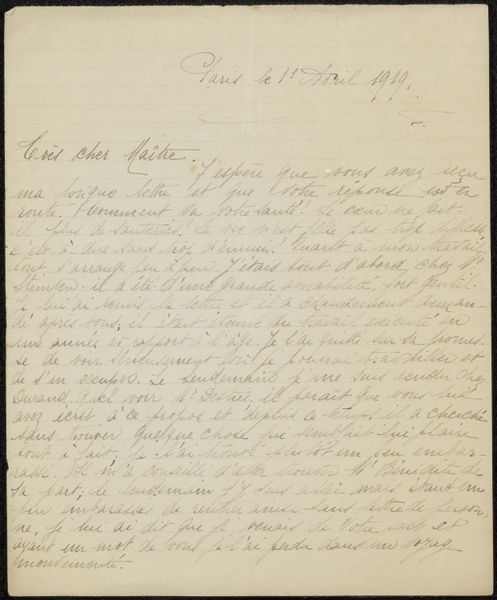 Paris le 1er Avril 1919.
Très cher Maître.
J'espère que vous avez reçu
ma longue lettre et que votre réponse est en
route. Comment va votre santé? Le cœur ne fait
il plus de sauteries? La vie n'est elle pas trop difficile
c'est à dire sans trop d'ennuis? Quant à mon travail
tout s'arrange peu à peu. J'étais tout d'abord chez Mr
il a été d'une grande amabilité, fort gentil.
Je lui ai remis la lettre et il a chaudement deman-
dé après vous; il était étonné du travail exécuté en
une année et rapport à l'âge. Je l'ai quitté sur sa promes-
se de voir sérieusement où je pourrai travailler et
de s'en occuper. Le lendemain je me suis rendu chez
Durand, voir Mr Destrée. il parait que vous lui
avez écrit à ce propos et depuis ce temps il a cherché
sans trouver quelque chose qui semblait lui plaire
tout à fait. Je l'ai trouvé plutôt un peu embar-
rassé. Il m'a conseillé d'aller trouver Mr Bénédite de
sa part; le lendemain j'y suis allé mais étant un
peu embarassée de rentrer ainsi sans lettre de person-
ne, je lui ai dit que je venais de votre part et
ayant eu un mot de vous je l'ai perdu dans un voyage
mouvementé.